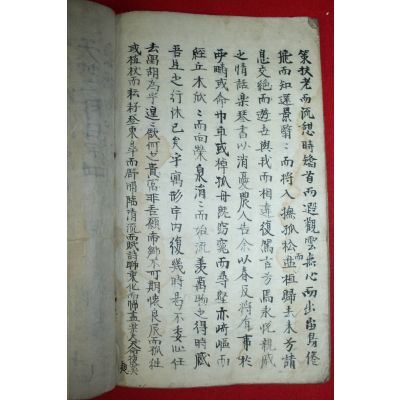 策扶老而流憩時矯首而遐觀雲無心而出岫鳥倦
飛而知還景翳翳而將入撫孤松盤桓歸去來兮請
息交絶而遊世與我而相違復駕言兮焉求悅親戚
之情話樂琴書以消憂農人告余以春及將有事於
西疇或命巾車或棹孤舟既窈窕而尋壑亦崎嶇而
經丘木欣欣而向榮泉涓涓而始流羡萬物之得時感
吾生之行休已矣乎寓形宇內復幾時曷不委心任
去留胡為乎遑遑欲何之富貴非吾願帝鄉不可期懷良辰而孤往
或植杖而耘耔登東皋而舒嘯臨清流而賦詩聊乘化而歸盡樂夫天命復奚
疑